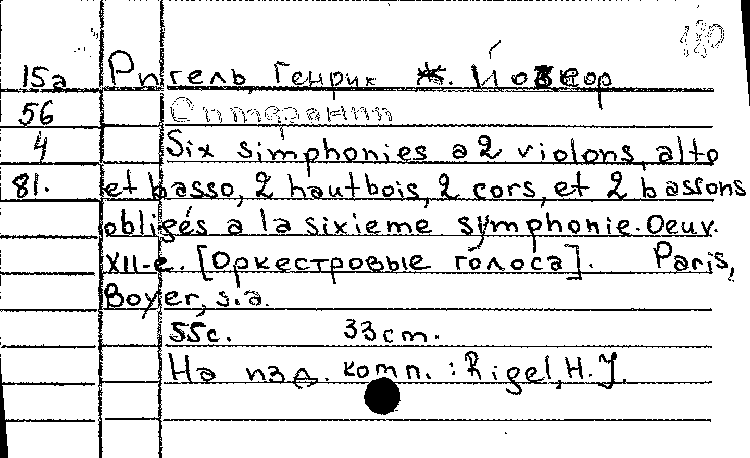 180
15а Ригель, Генрих Ж. Йозеф
56 Симфонии
4 Six simphonies a 2 violons, alto
81. et basso, 2 hautbois, 2 cors, et 2 bassons
obligés a la sixieme symphonie. Oeuv.
XII-e. [Оркестровые голоса]. Paris,
Boyer, s.a.
55с. 33cm.
На изд. комп.: Rigel, H. J.